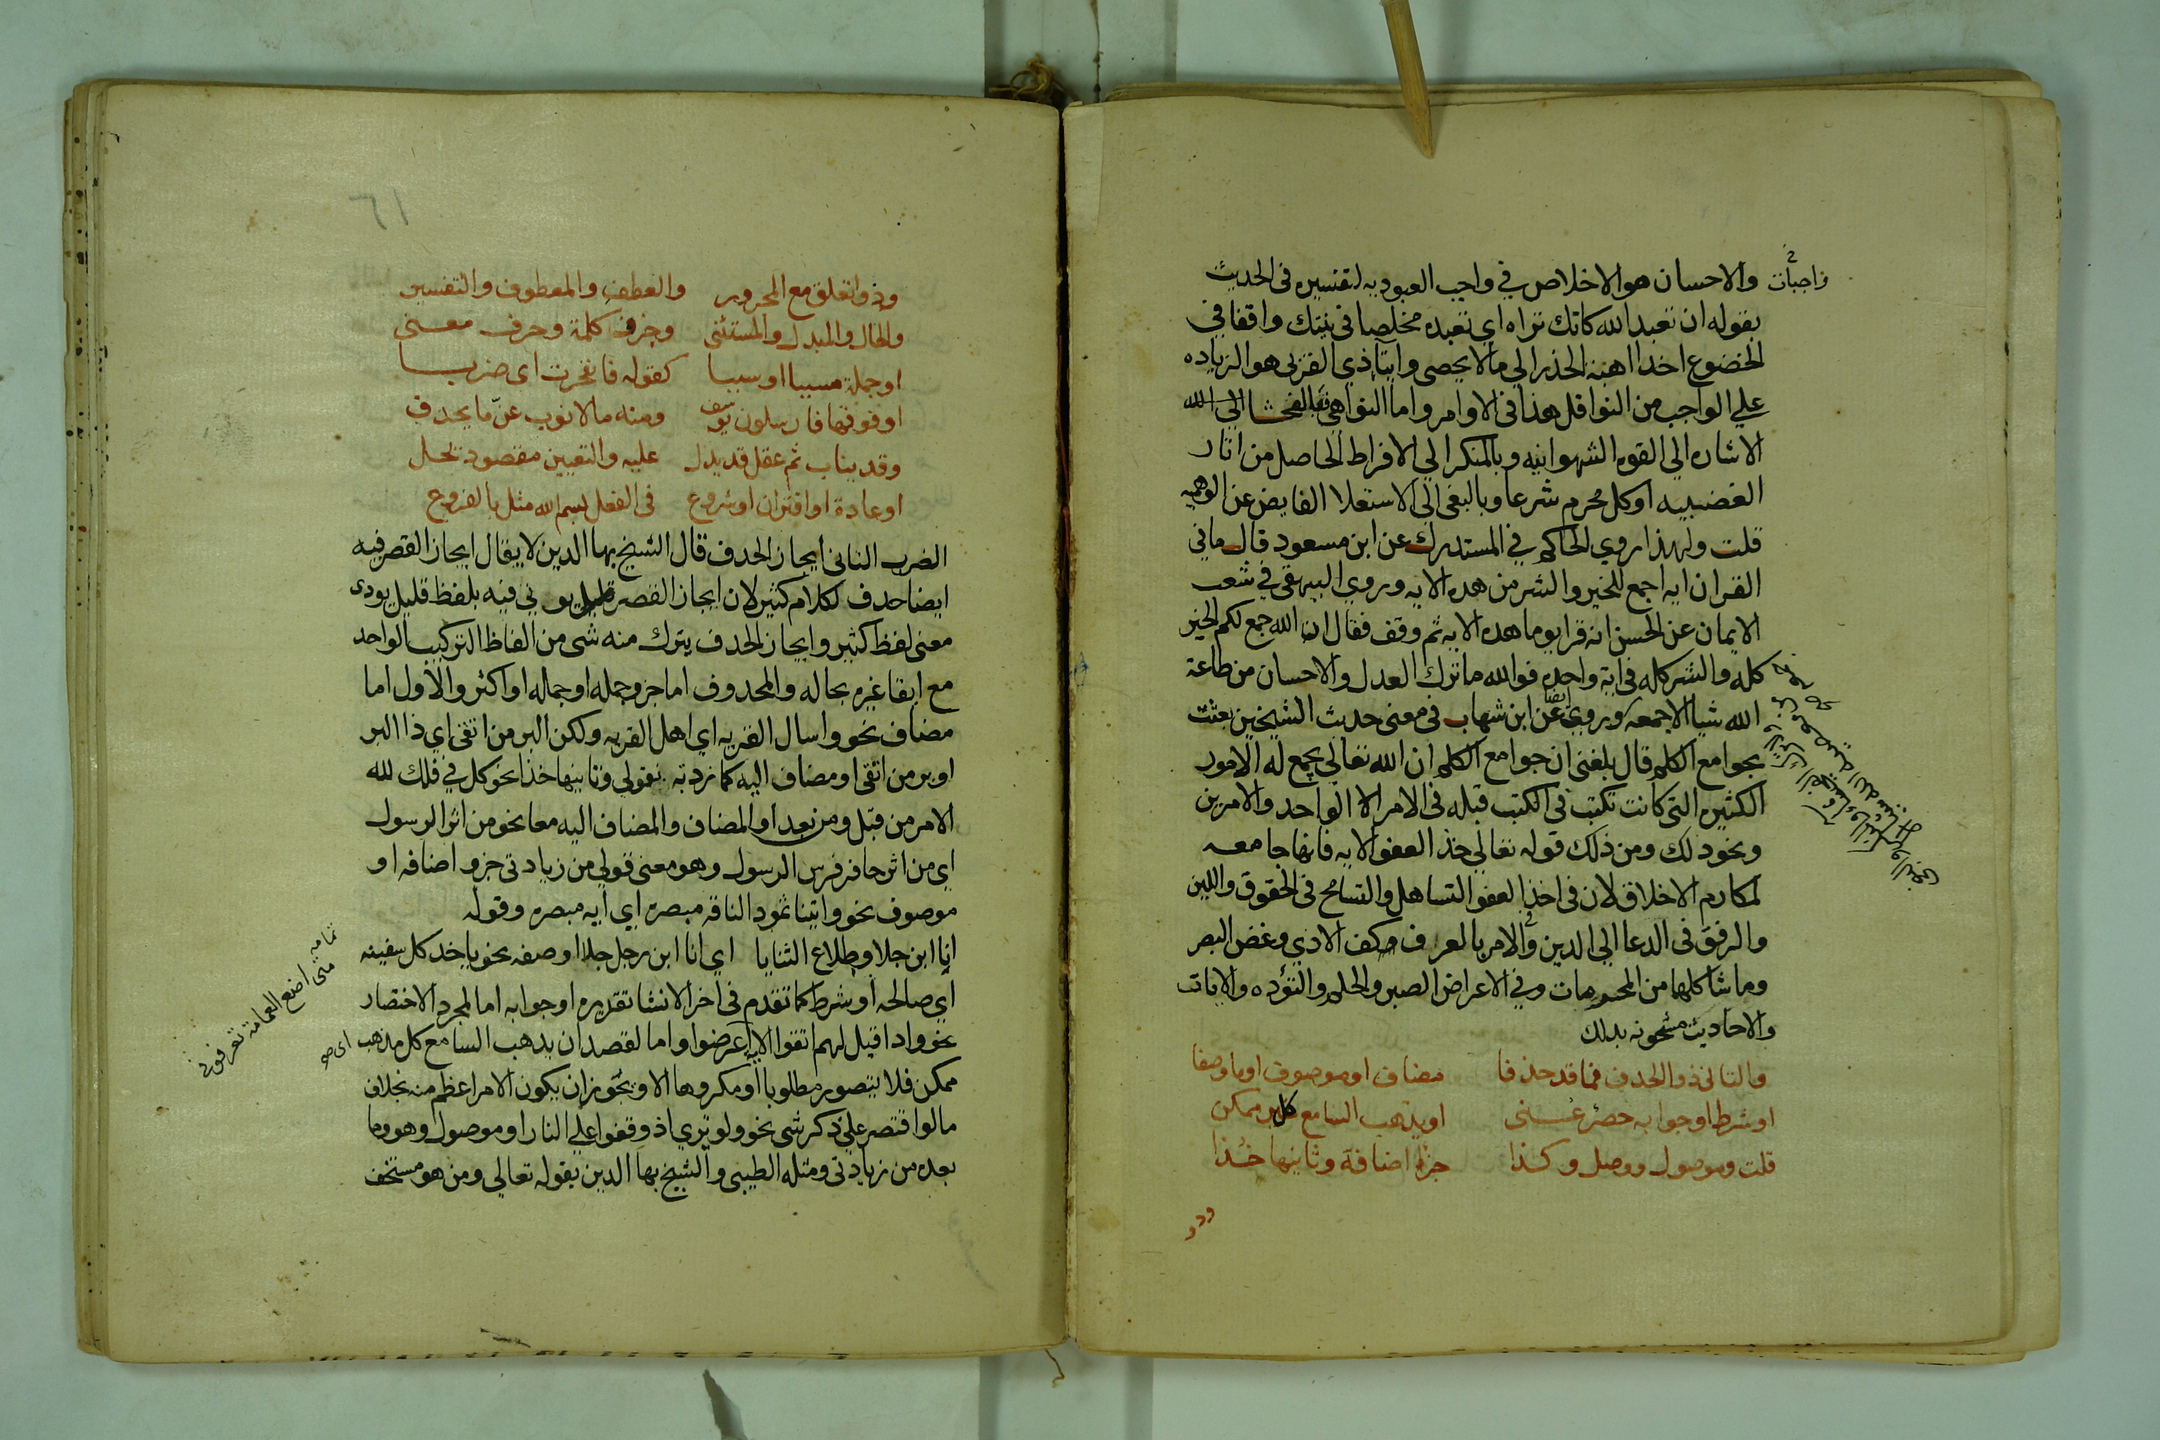 والاحسان هو الاخلاص في واجب العبوديه لتفسيره في الحديث
واجبات
بقوله ان تعبد الله كانك تراه اي تعبده مخلصا في نيتك واقفا في
الخضوع اخذا اهبة الحذر الي مالا يحصى وايتا ذي القربى هو الزياده
علي الواجب من النوافل هذا في الاوامر واما النواهي فبالفحشا الي
الاشاره الي القوه الشهوانيه وبالمنكر الي الافراط الحاصل من اثار
الغضبيه او كل محرم شرعا وبالبغي الي الاستعلا الفايض عن الوهميه
قلت ولهذا روي الحاكم في المستدرك عن ابن مسعود قال ما في
القران ايه اجمع للخير والشر من هده الايه وروي البيهقي في شعب
الايمان عن الحسن انه قرا يوما هده الايه ثم وقف فقال ان الله جمع لكم الخير
كله والشر كله في اية واحده فوالله ما ترك العدل والاحسان من طاعة
الله شيا الا جمعه وروي ايضا عن ابن شهاب في معنى حديث الشيخين بعثت
بجوامع الكلم قال بلغني ان جوامع الكلم ان الله تعالي يجمع له الامور
الكثيره التي كانت تكتب في الكتب قبله في الامر الواحد والامرين
ونحو ذلك ومن ذلك قوله تعالي خذ العفو الايه فانها جامعه
لمكارم الاخلاق لان في اخذ العفو التساهل والتسامح في الحقوق واللين
والرفق في الدعا الي الدين والامر بالمعرف وكف الاذي وغض البصر
وما شاكلها من المحرمات وفي الاعراض الصبر والحلم والتؤده والايات
والاحاديث مشحونه بدلك
والثاني ذو الحدف فما قد حذفا مضاف او موصوف او ما وصفا
او شرط او جوابه حصر عنى او يذهب السامع كل ممكن
قلت وموصول ووصل وكذا جزا اضافة وثانيها خذا
وذو
وذو اتعلق مع المجرور والعطف والمعطوف والتفسير
والحال والمبدل والمستثنى وجزو كلمة وحرف معنى
او جملة مسببا او سببا كقوله فانفجرت اى ضربا
او فوقها فارسلون يوسف ومنه مالا نوب عن ما يحدف
وقد يناب ثم عقل قد يدل عليه والتعيين مقصود يحل
او عادة او اقتران او شروع في الفعل بسم الله مثل بالفروع
٦١
الضرب الثانى ايجاز الحدف قال الشيخ بها الدين لا يقال ايجاز القصر فيه
ايضا حدف لكلام كثير لان ايجاز القصر يوتي فيه بلفظ قليل يودى
معنى لفظ كثير وايجاز الحدف يترك منه شى من الفاظ التركيب الواحد
مع ابقا غيره بحاله والمحدوف اما جزو جمله او جمله او اكثر والاول اما
مضاف نحو واسال القريه اي اهل القريه ولكن البر من اتقى اي ذا البر
او بر من اتقى او مضاف اليه كما زدته بقولي وثانيها خذا نحو كل في فلك لله
الامر من قبل ومن بعد او المضاف والمضاف اليه معا نحو من اثر الرسول
اي من اثر حافر فرس الرسول وهو معنى قولي من زيادتى جزو اضافه او
موصوف نحو واتينا ثمود الناقه مبصره اي ايه مبصره وقوله
انا ابن جلا وطلاع الثنايا اي انا ابن رجل جلا او صفه نحو ياخد كل سفينه
تمامه
متى اضع العمامة تعرفوني
اي صالحه او شرط كما تقدم في اخر الانشا تقديره او جوابه اما لمجرد الاختصار
نحو وادا قيل لهم اتقوا الاية اي اعرضوا واما لقصد ان يدهب السامع كل مدهب
ممكن فلا يتصور مطلوبا او مكروها الا ويجوز ان يكون الامر اعظم منه بخلاف
مالو اقتصر علي ذكر شى نحو ولو تري اذ وقفوا علي النار او موصول وهو وما
بعده من زيادتى ومثله الطيبى والشيخ بها الدين بقوله تعالي ومن هو مستخف